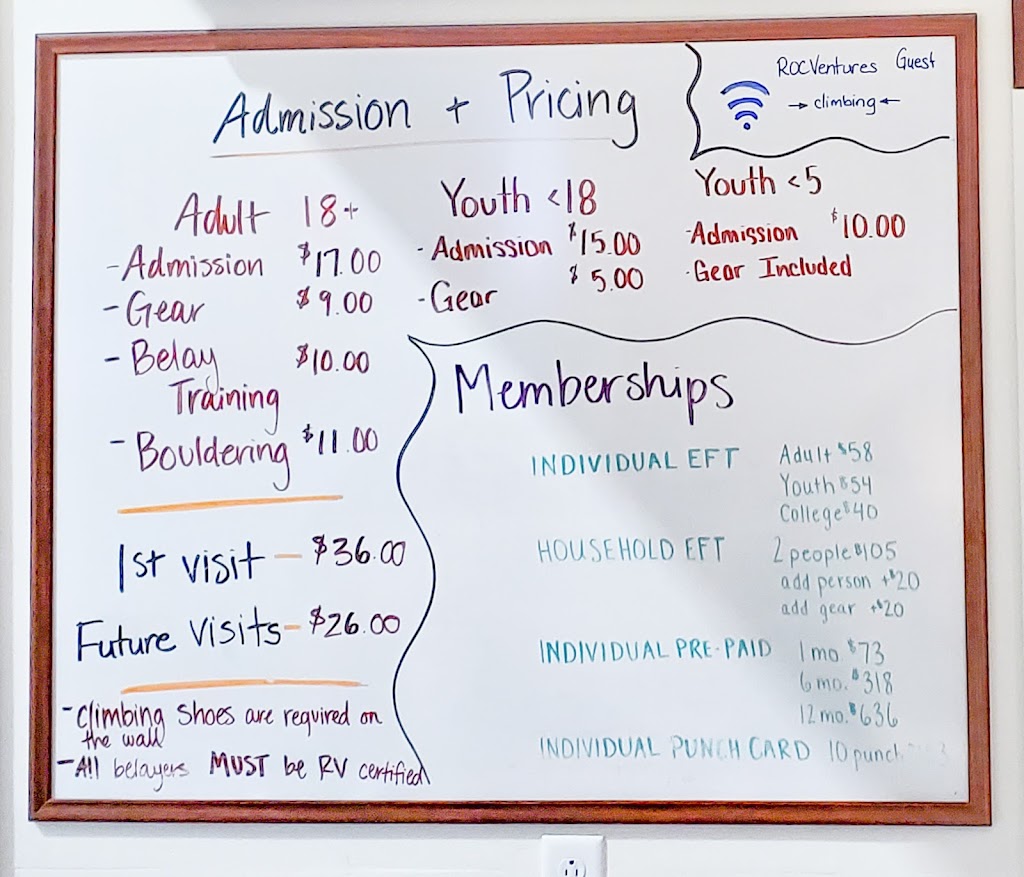 Admission + Pricing
ROCVentures Guest
→ climbing ←
Adult 18+
- Admission $17.00
- Gear $9.00
- Belay Training $10.00
- Bouldering $11.00
1st visit — $36.00
Future Visits — $26.00
- Climbing Shoes are required on
the wall
- All belayers MUST be RV certified
Youth <18
- Admission $15.00
- Gear $5.00
Youth <5
- Admission $10.00
- Gear Included
Memberships
INDIVIDUAL EFT Adult $58
Youth $54
College $40
HOUSEHOLD EFT 2 people $105
add person +$20
add gear +$20
INDIVIDUAL PRE-PAID 1 mo. $73
6 mo. $318
12 mo. $636
INDIVIDUAL PUNCH CARD 10 punch